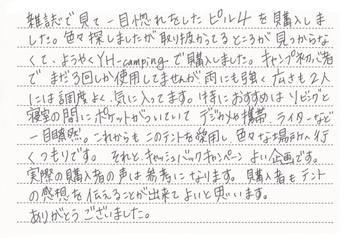 雑誌で見て一目惚れをしたピル4を購入しま
した。色々探しましたが取り扱かってるところが見つからな
くて、ようやくYH-campingで購入しました。キャンプ初心者
でまだ3回しか使用してませんが雨にも強く広さも2人
には調度よく、気に入ってます。特におすすめはリビングと
寝室の間にポケットがついていてデジカメや携帯、ライターなど
一目瞭然。これからもこのテントを使用し色々な場所へ行
くつもりです。それと、キャッシュバックキャンペーンよい企画です。
実際の購入者の声は参考になります。購入者もテント
の感想を伝えることが出来てよいと思います。
ありがとうございました。